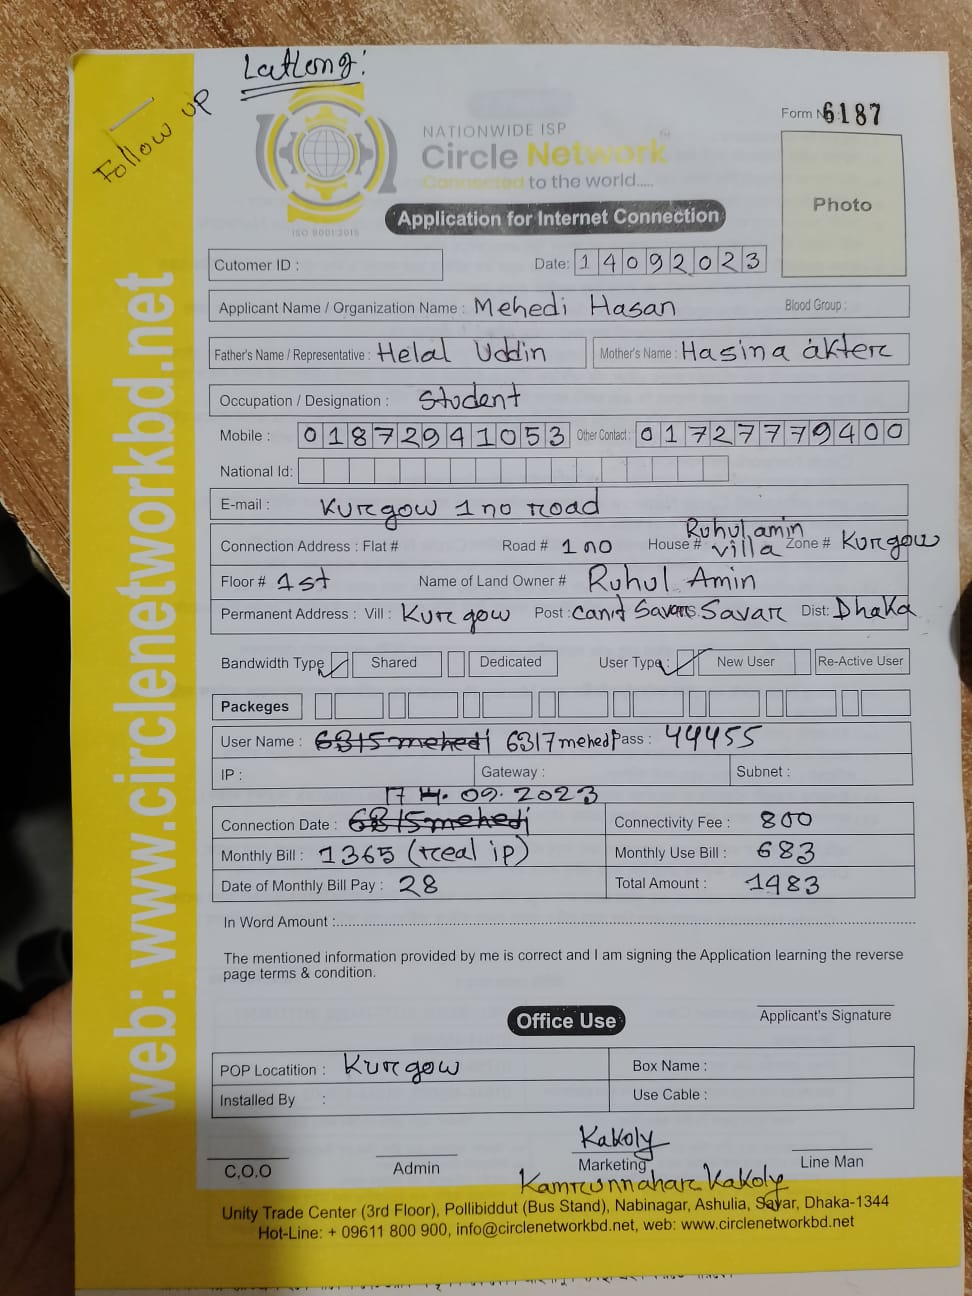 LatLong:
Follow up
NATIONWIDE ISP
Circle Network
Connected to the world.....
ISO 9001:2015
Form No 6187
Photo
Application for Internet Connection
Cutomer ID :
Date: 14092023
Applicant Name / Organization Name : Mehedi Hasan Blood Group :
Father's Name / Representative : Helal Uddin Mother's Name : Hasina akter
Occupation / Designation : Student
Mobile : 01872941053 Other Contact : 01727779400
National Id:
E-mail : Kurgow 1 no road
Connection Address : Flat # Road # 1 no House # Ruhul amin villa Zone # Kurgow
Floor # 1st Name of Land Owner # Ruhul Amin
Permanent Address : Vill : Kurgow Post : Savar Dist: Dhaka
Bandwidth Type Shared Dedicated User Type : New User Re-Active User
Packeges
User Name : 6315mehedi 6317mehedi Pass : 44455
IP : Gateway : Subnet :
09.2023
Connection Date : 6315mehedi Connectivity Fee : 800
Monthly Bill : 1365 (real ip) Monthly Use Bill : 683
Date of Monthly Bill Pay : 28 Total Amount : 1483
In Word Amount :
The mentioned information provided by me is correct and I am signing the Application learning the reverse
page terms & condition.
Applicant's Signature
Office Use
POP Locatition : Kurgow Box Name :
Installed By : Use Cable :
Kakoly
C.O.O Admin Marketing Line Man
Kamrunnahar Kakoly
Unity Trade Center (3rd Floor), Pollibiddut (Bus Stand), Nabinagar, Ashulia, Savar, Dhaka-1344
Hot-Line: + 09611 800 900, info@circlenetworkbd.net, web: www.circlenetworkbd.net
web: www.circlenetworkbd.net